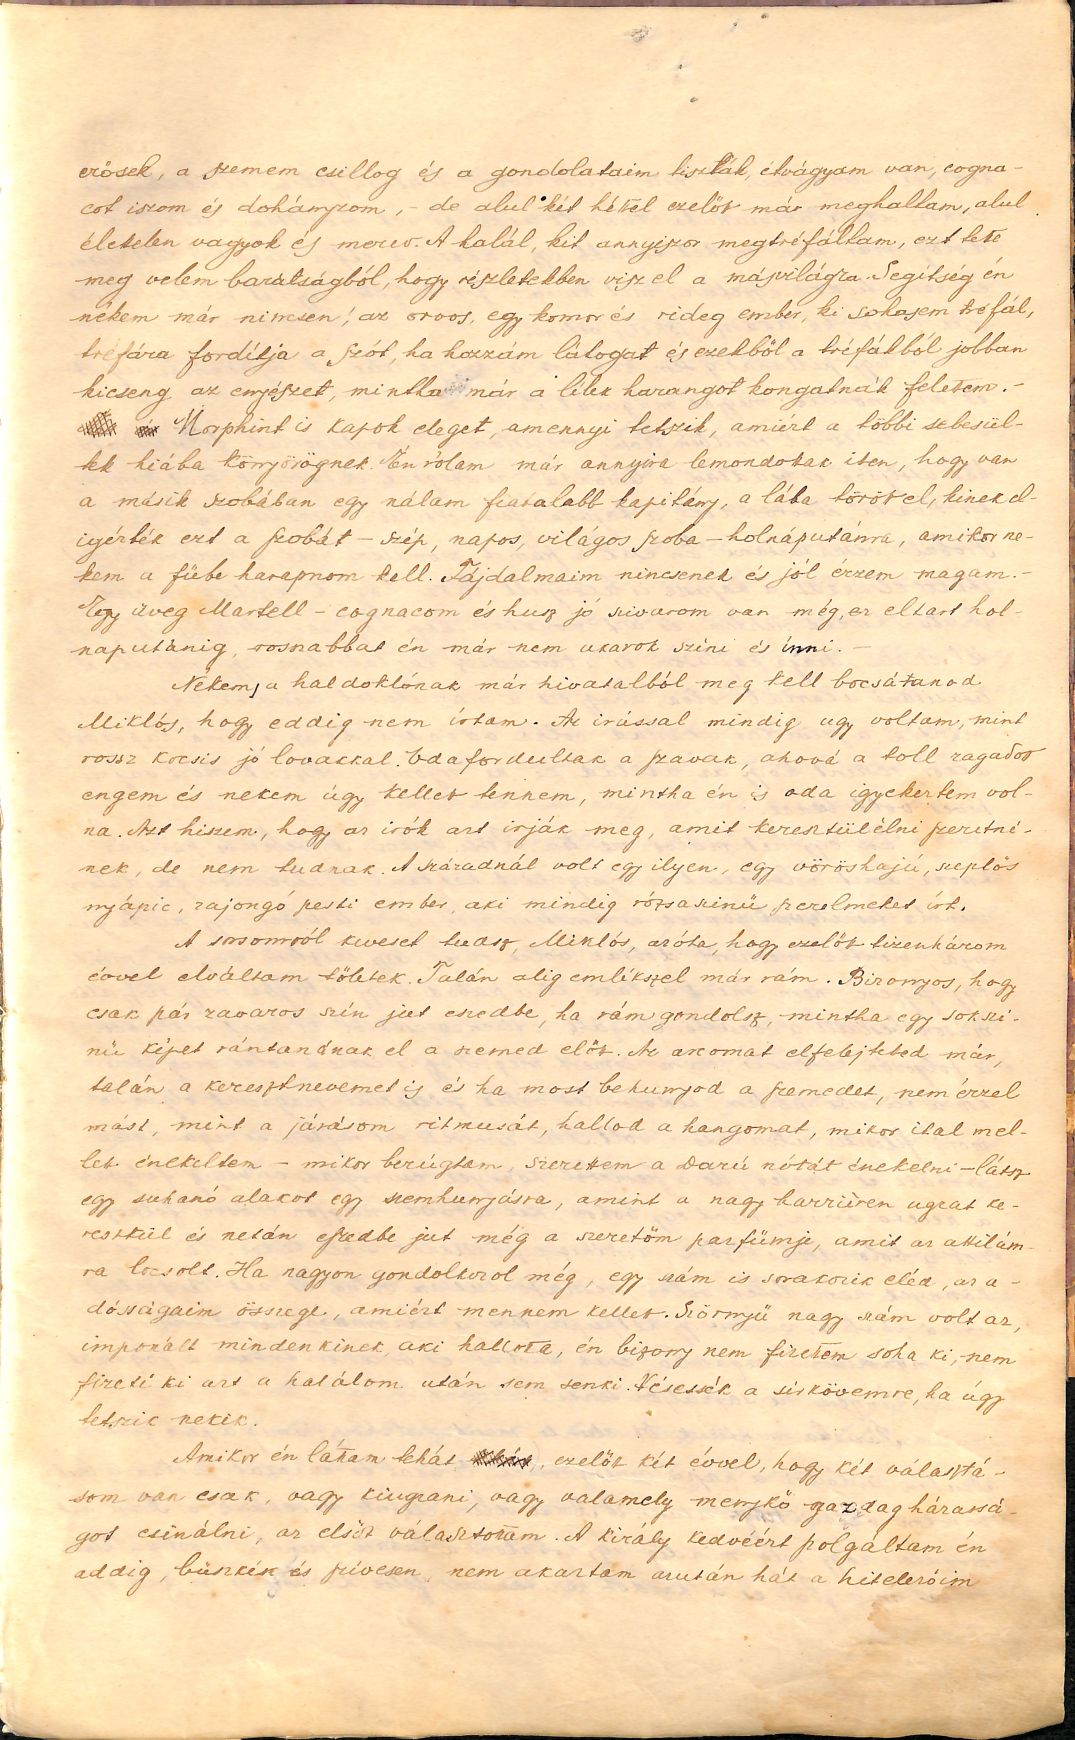 erősek, a szemem csillog és a gondolataim tiszták, étvágyam van, cogna-
cot iszom és dohányzom, - de alul két héttel ezelőtt már meghaltam, alul
életelen vagyok és merev. A halál, kit annyiszor megtréfáltam, ezt tette
meg velem barátságból, hogy részletekben visz el a másvilágra. Segítség én
nékem már nincsen; az orvos, egy komor és rideg ember, ki sohasem tréfál,
tréfára fordítja a szót, ha hozzám látogat és ezekből a tréfákból jobban
kicseng az enyészet, mintha már a lélek harangot kongatnák felettem. -
Morphint is kapok eleget, amennyi tetszik, amiért a többi sebesül-
tek hiába könyörögnek. Én rólam már annyira lemondottak itten, hogy van
a másik szobában egy nálam fiatalabb kapitány, a lába törött el, kinek el-
igérték ezt a szobát - szép, napos, világos szoba - holnáputánra, amikor ne-
kem a fűbe harapnom kell. Fájdalmaim nincsenek és jól érzem magam. -
Egy üveg Martell - cognacom és husz jó szivarom van még, ez eltart hol-
naputánig, rosszabbat én már nem akarok színi és ínni. -
Nékem, a haldoklónak már hivatalból meg kell bocsátanod
Miklós, hogy eddig nem írtam. Az irással mindig ugy voltam, mint
rossz kocsis jó lovakkal. Odafordultak a szavak, ahová a toll ragadott
engem és nekem úgy kellett tennem, mintha én is oda igyekeztem vol-
na. Azt hiszem, hogy az irók azt irják meg, amit keresztülélni szeretné-
nek, de nem tudnak. A századnál volt egy ilyen, egy vöröshajú, szeplős
nyápic, rajongó pesti ember, aki mindig rózsaszinű szerelmeket írt.
A sorsomról keveset tudsz, Miklós, azóta, hogy ezelőtt tizenhárom
évvel elváltam tőletek. Talán alig emlékszel már rám. Bizonyos, hogy
csak pár zavaros szín jut eszedbe, ha rám gondolsz, mintha egy sokszí-
nű képet rántanának el a szemed előtt. Az arcomat elfelejtetted már,
talán a keresztnevemet is és ha most behunyod a szemedet, nem érzel
mást, mint a járásom ritmusát, hallod a hangomat, mikor ital mel-
lett énekeltem - mikor berúgtam, szerettem a Darú nótát énekelni - látsz
egy suhanó alakot egy szemhunyásra, amint a nagy barrièren ugrat ke-
resztül és netán eszedbe jut még a szeretőm parfümje, amit az attilám-
ra locsolt. Ha nagyon gondolkozol még, egy szám is sorakozik eléd, az a-
dósságaim összege, amiért mennem kellett. Szörnyű nagy szám volt az,
imponált mindenkinek aki hallotta, én bizony nem fizettem soha ki, nem
fizeti ki azt a halálom után sem senki. Vésessék a sírkövemre, ha úgy
tetszik nekik.
Amikor én láttam tehát, ezelőtt két évvel, hogy két választá-
som van csak, vagy kiugrani, vagy valamely mennykő gazdag házassá-
got csinálni, az elsőt választottam. A király kedvéért szolgáltam én
addig, büszkén és szívesen, nem akartam azután hát a hitelezőim